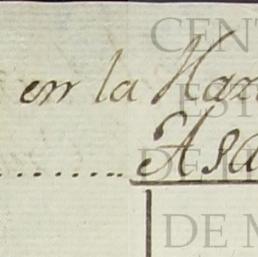 en la Har
Asa
CENT
EST
DE
DE M